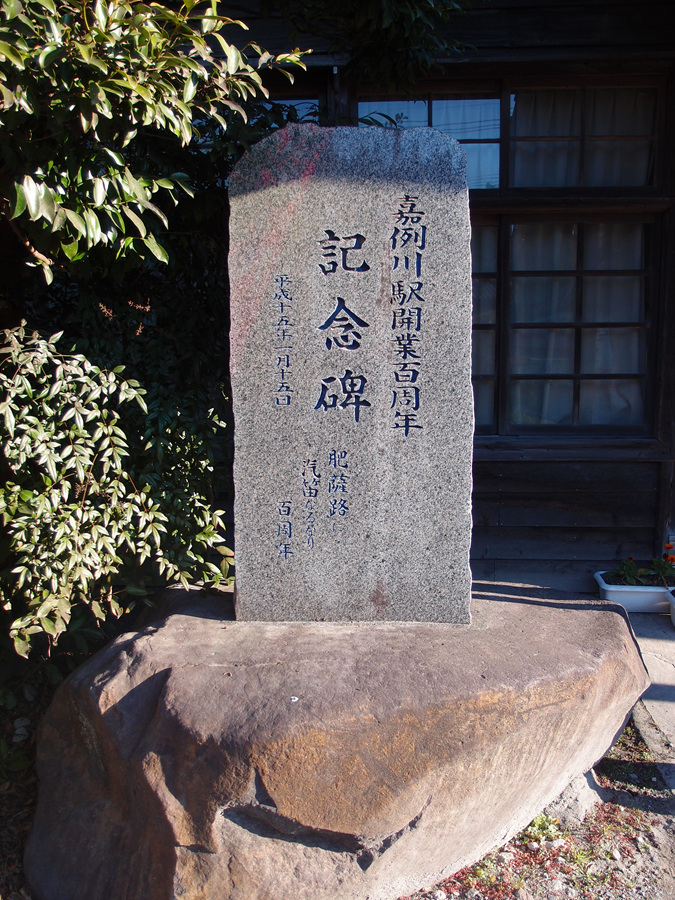 嘉例川駅開業百周年
記念碑
平成十五年一月十五日
肥薩路に
汽笛
百周年